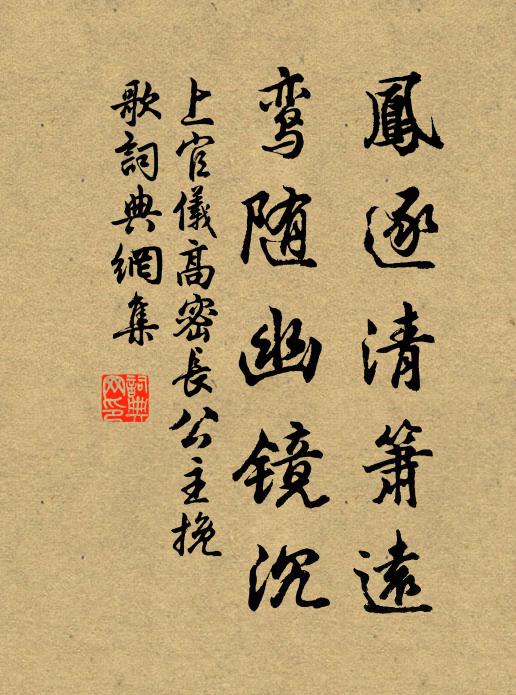 鳳逐清簫遠
鸾随幽镜沉
上官儀高密長公主挽
歌詞典網集
詞典
网印